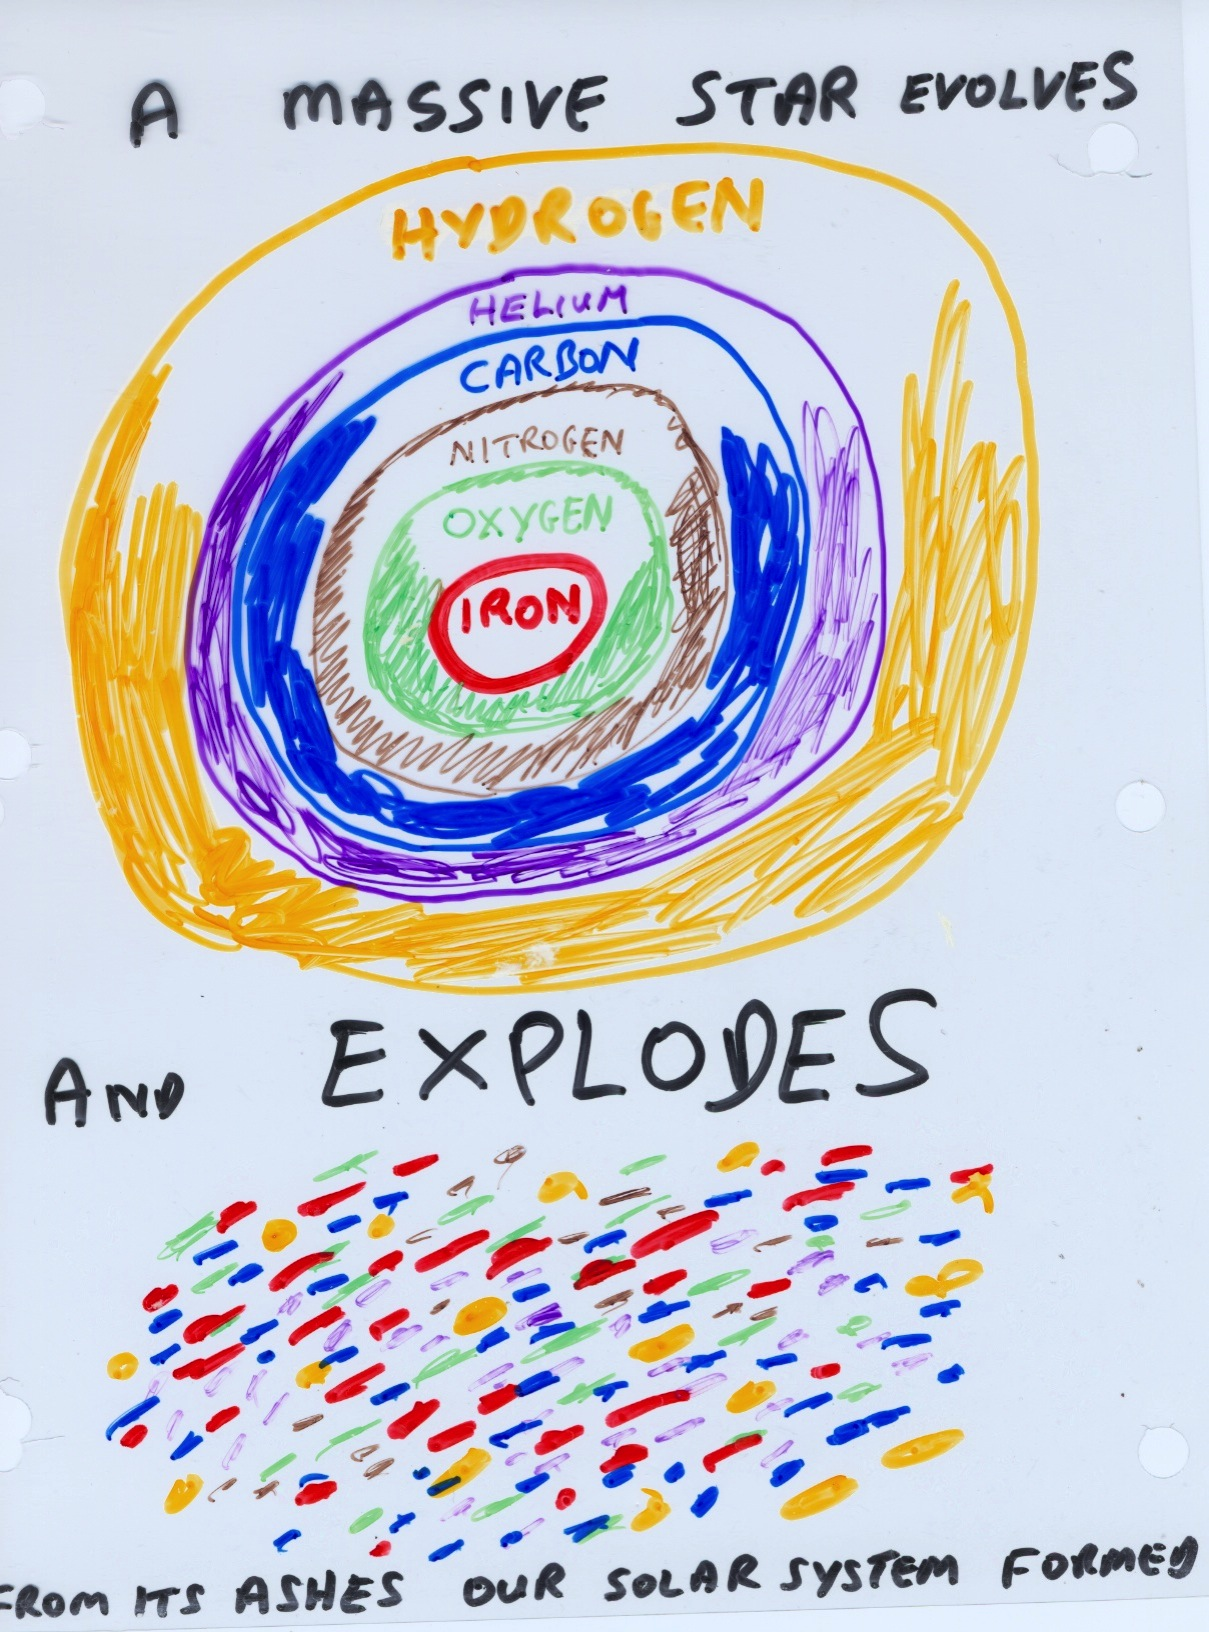 A MASSIVE STAR EVOLVES
HYDROGEN
HELIUM
CARBON
NITROGEN
OXYGEN
IRON
AND EXPLODES
FROM ITS ASHES OUR SOLAR SYSTEM FORMED